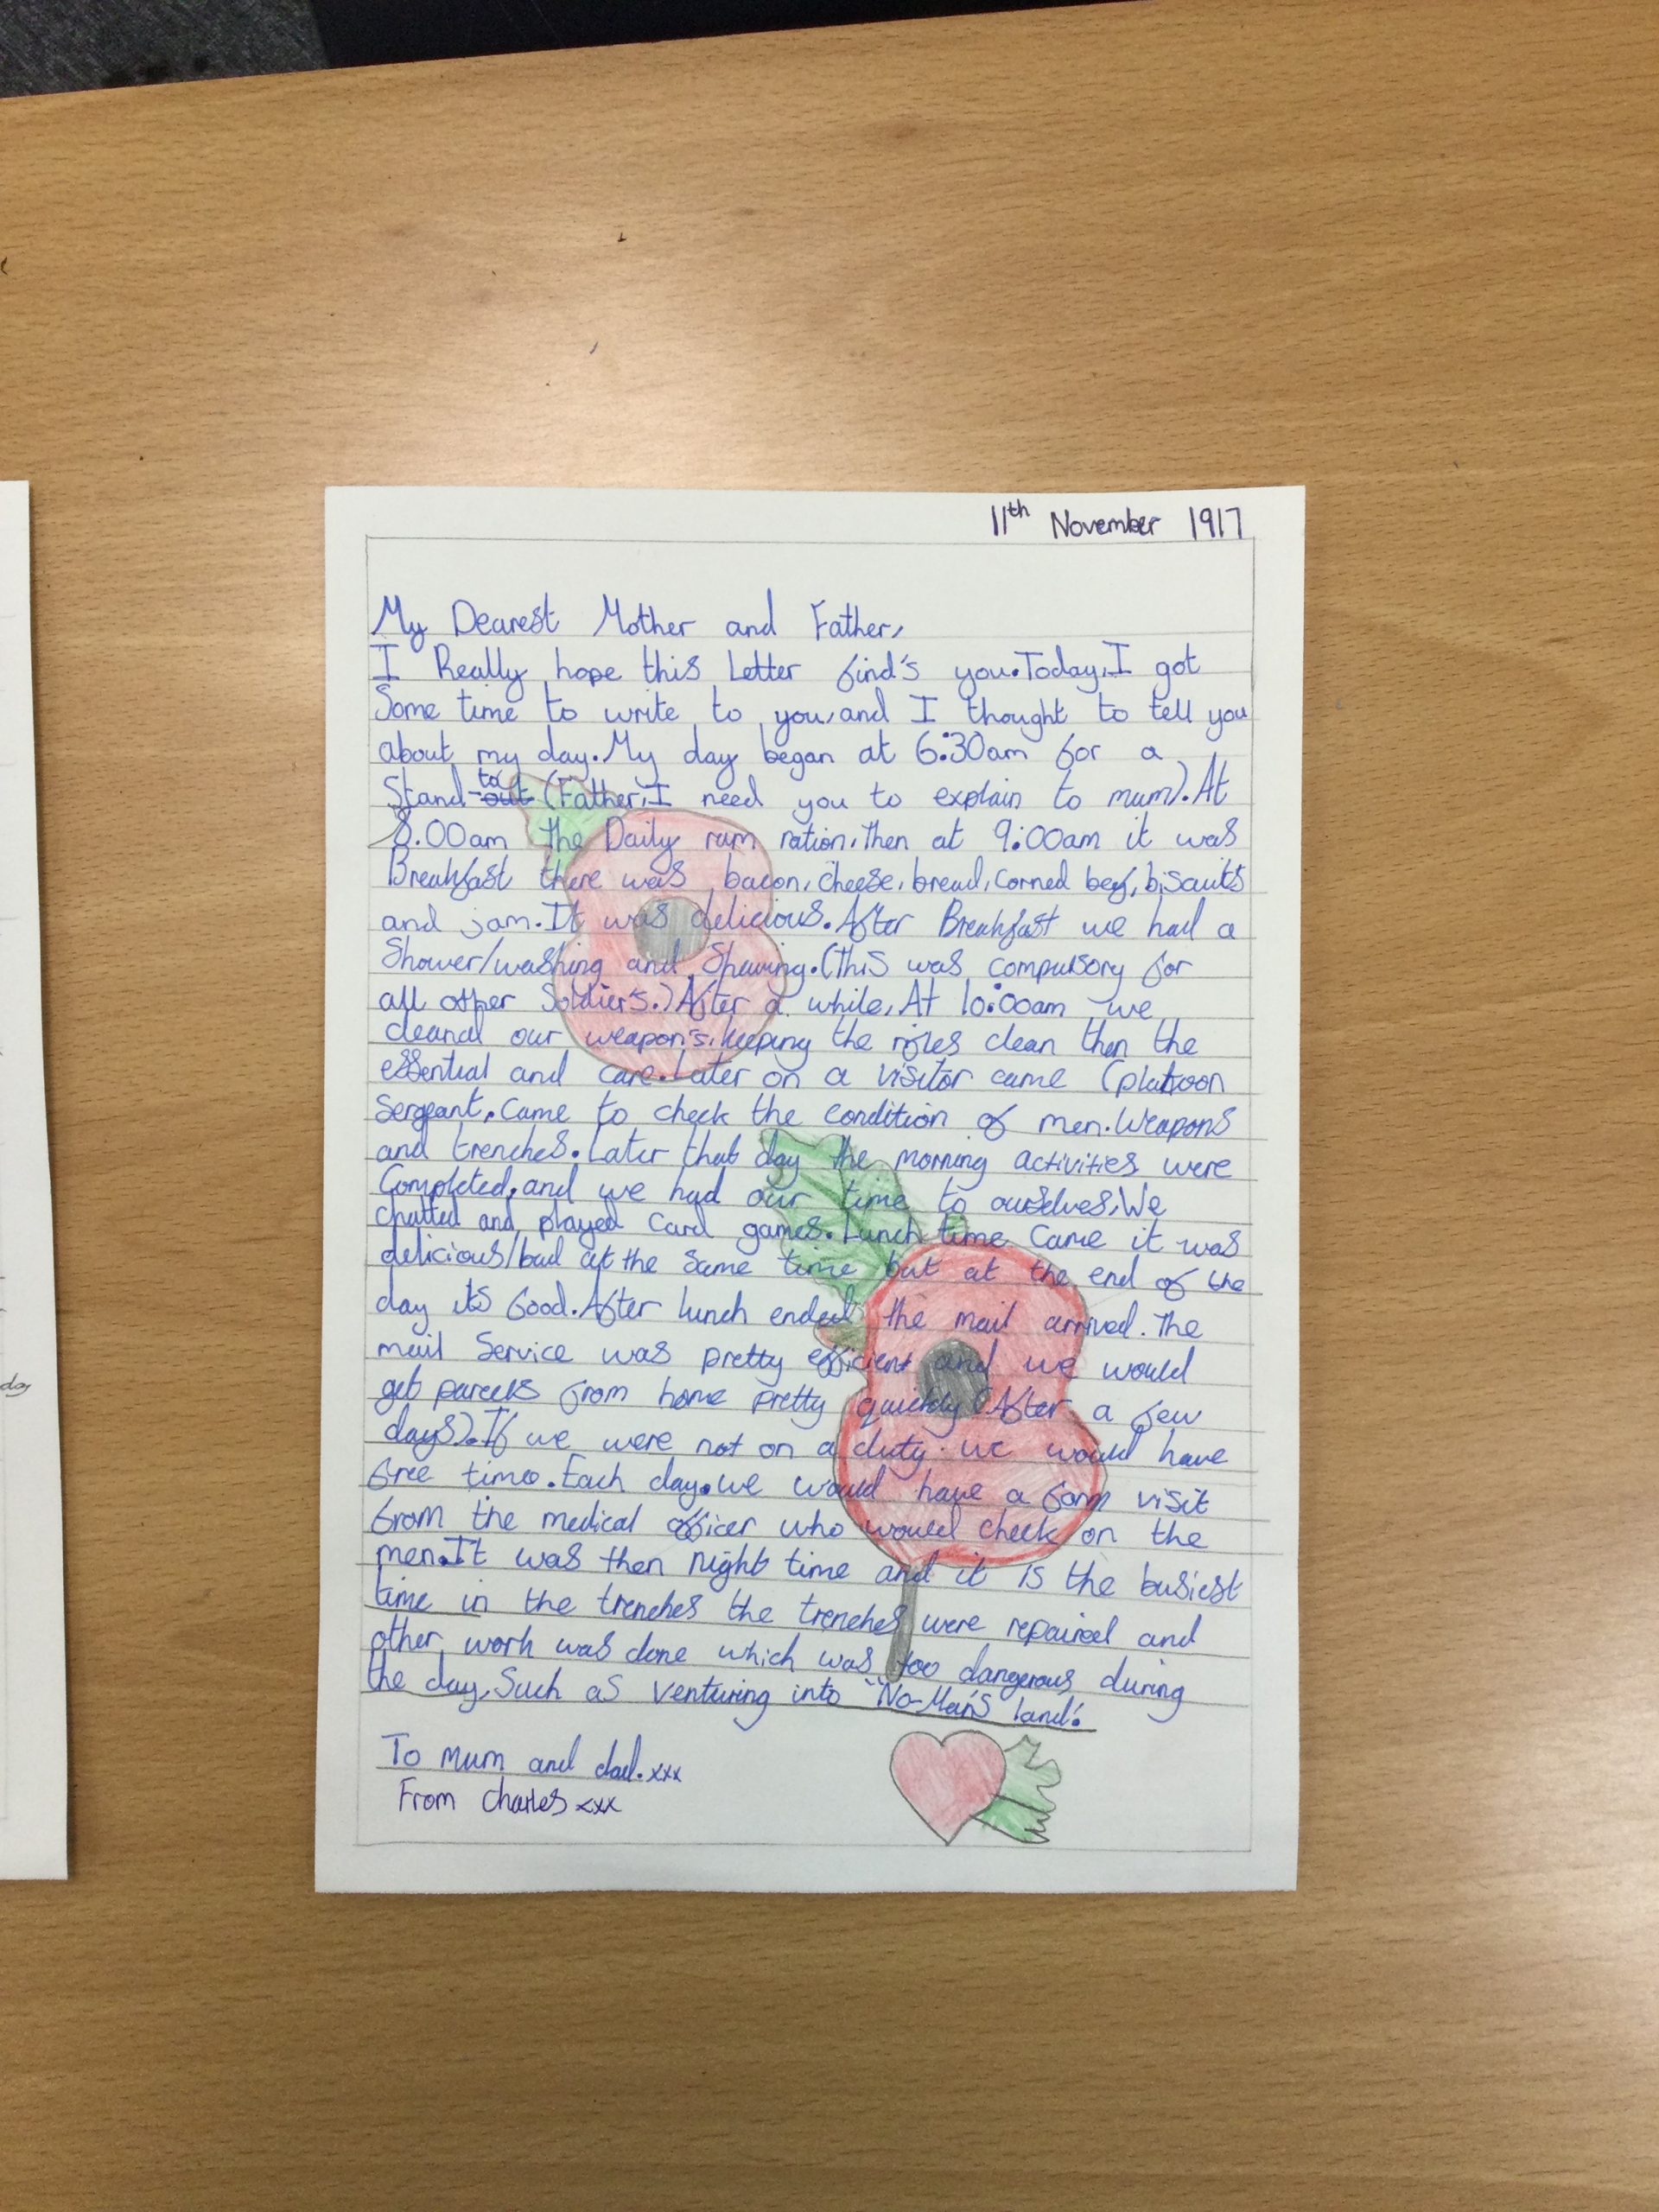 11th November 1917
My Dearest Mother and Father,
I Really hope this Letter find's you.Today,I got
Some time to write to you,and I thought to tell you
about my day.My day began at 6:30am for a
Stand-out to (Father,I need you to explain to mum).At
8.00am the Daily rum ration,then at 9:00am it was
Breakfast there was bacon,cheese,bread,corned beef,biscuits
and jam.It was delicious.After Breakfast we had a
Shower/washing and Shaving.(This was compulsory for
all other Soldier's.)After a while,At 10:00am we
cleaned our weapon's,keeping the rifles clean then the
essential and care.Later on a visitor came (platoon
Sergeant.Came to check the condition of men.Weapons
and trenches.Later that day the morning activities were
Completed,and we had our time to ourselves,We
chatted and played Card games.Lunch time Came it was
delicious/bad at the same time but at the end of the
day its food.After lunch ended the mail arrived.The
mail Service was pretty efficient and we would
get parcels from home pretty quickly (After a few
days).If we were not on a duty. we would have
free time.Each day.we would have a visit
from the medical officer who would check on the
men.It was then night time and it is the busiest
time in the trenches the trenches were repaired and
other work was done which was too dangerous during
the day,Such as venturing into "No-Man's land".
To mum and dad.xxx
From Charles xxx
day